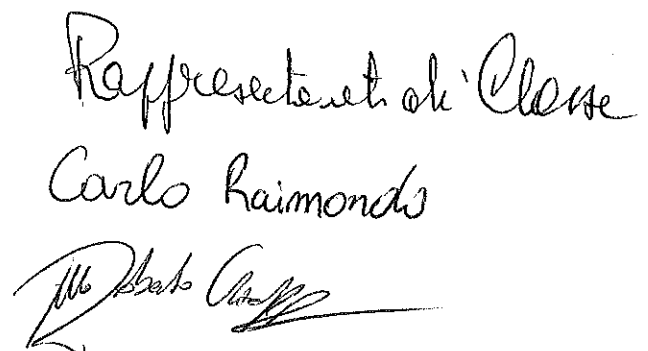 Rappresentanti di Classe
Carlo Raimondo
Roberto